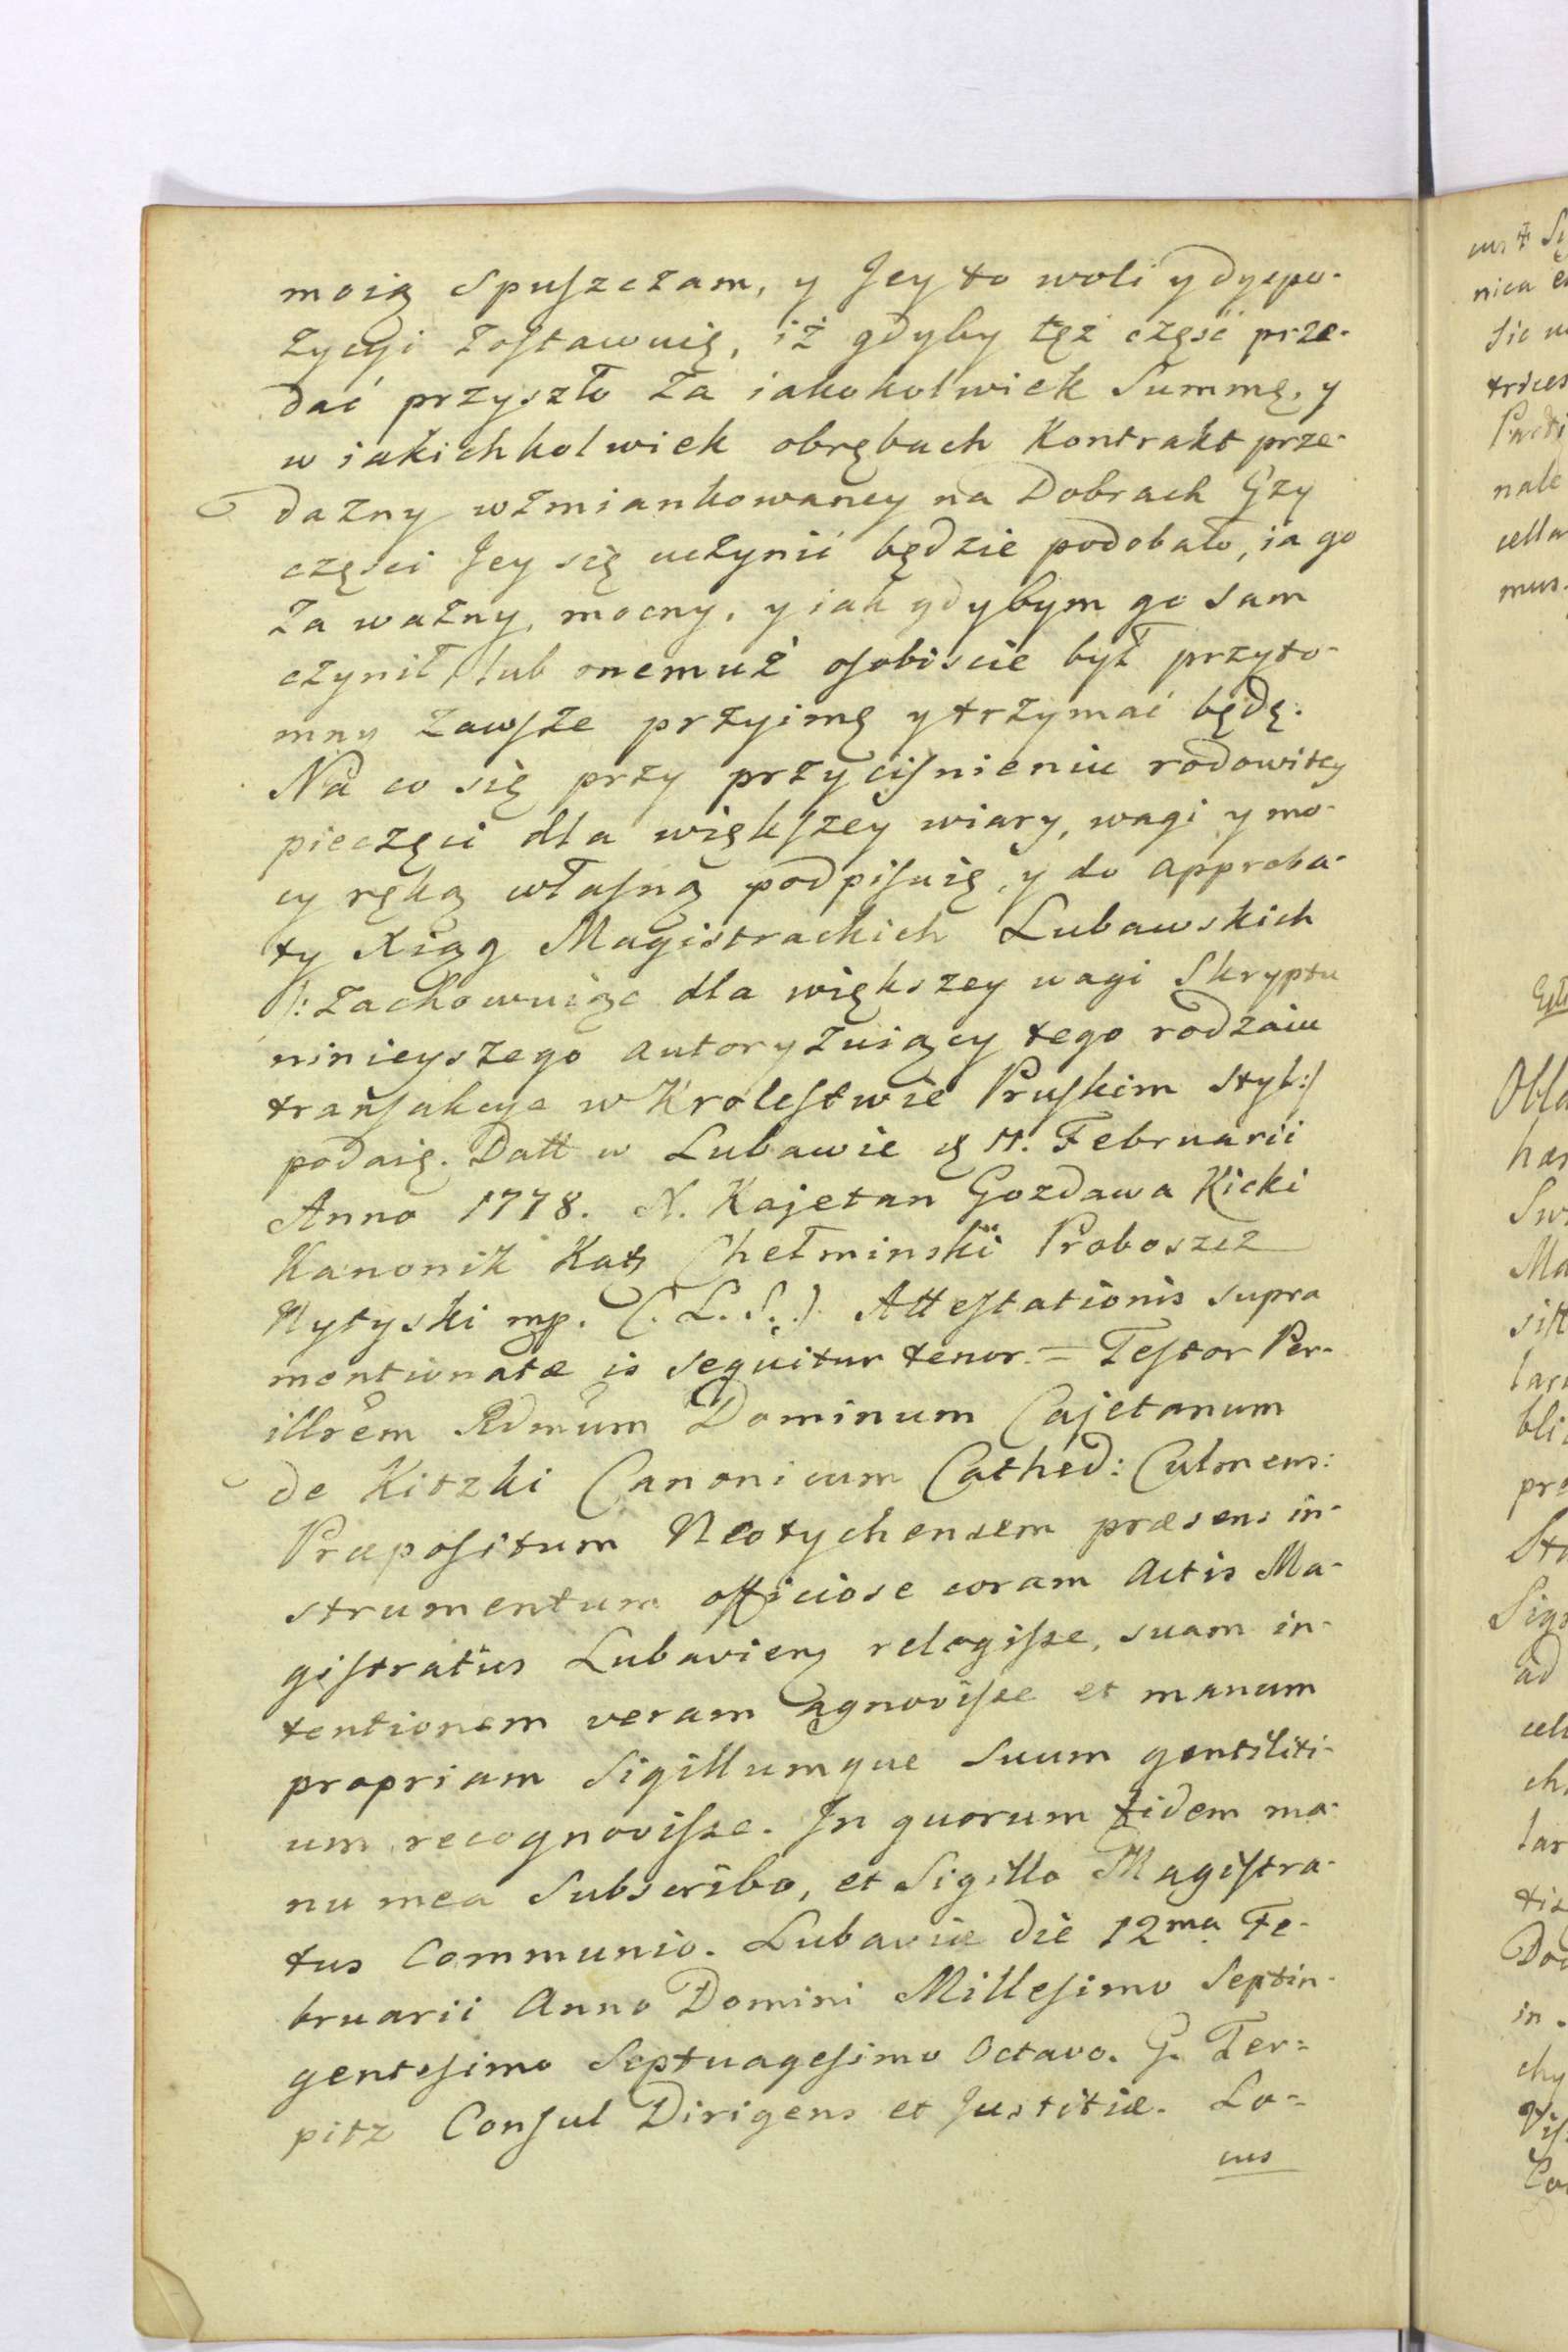 moią spuszczam, y Jey to woli y dyspo-
zycyi zostawuię, iż gdyby tęż część prze-
dać przyszło za iakokolwiek Summę, y
w iakichkolwiek obrębach Kontrakt prze-
dażny wzmiankowaney na Dobrach Gzy
części Jey się uczynić będzie podobało, ia go
za ważny, mocny, y iak gdybym go sam
czynił, lub onemuż osobiscie był przyto-
mny zawsze przyimę y trzymać będę.
Na co się przy przyciśnieniu rodowitey
pieczęci dla większey wiary, wagi y mo-
cy ręką własną podpisuię, y do approba-
ty Xiąg Magistrackich Lubawskich
/: Zachowuiąc dla większey wagi Skryptu
ninieyszego autoryzuiący tego rodzaiu
transakcye w Krolestwie Pruskim Styl :/
podaię. Datt w Lubawie 11. Februarii
Anno 1778. X. Kajetan Gozdawa Kicki
Kanonik Kat Chełminskii Proboszcz
Nytyski mp. (. L. S. .) Attestationis supra
mentionatæ is sequitur tenor = Testor Per-
illrem Rdmum Dominum Cajetanum
de Kitzki Canonicum Cathed: Culmens:
Præpositum Neotychensem præsens in-
strumentum officiose coram Actis Ma-
gistratus Lubaviens relegisse, suam in-
tentionem veram agnovisse et manum
propriam Sigillumque suum gentiliti-
um recognovisse. In quorum fidem ma-
nu mea Subscribo, et Sigillo Magistra-
tus Communio. Lubaviæ die 12ma Fe-
bruarii Anno Domini Millesimo Septin-
gentesimo Septuagesimo Octavo. G. Ter=
pitz Consul Dirigens et Justitiæ. Lo=
cus